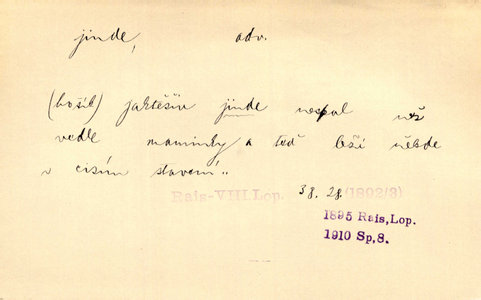 jinde, adv.
(hošík) jaktěživ jinde nespal než
vedle maminky a teď leží někde
v cizím stavení..
Rais-VIII.Lop. 38. 28 (1892/3)
1895 Rais,Lop.
1910 Sp,8.